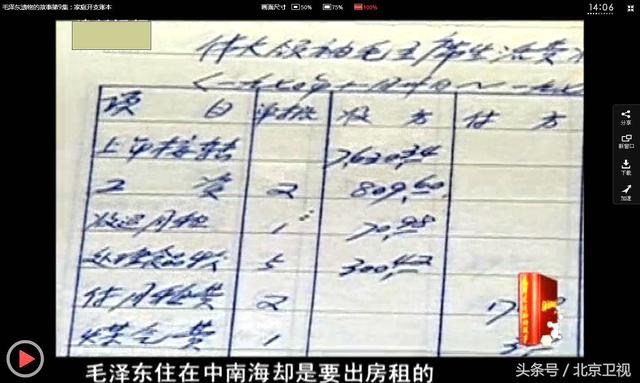 毛泽东遗物的故事第9集：家庭开支账本 画面尺寸 50% 75% 100% 14:06
伟大领袖毛主席生活费
项 目 单据 收 方 付 方
上年接转 7,620.34
工 资 2 809.60
退回月租 1 70.98
处理食品收 5 300.42
住月租费 2 17
煤气费 1
分享
新窗口
下载
加速
毛泽东住在中南海却是要出房租的
头条号 / 北京卫视